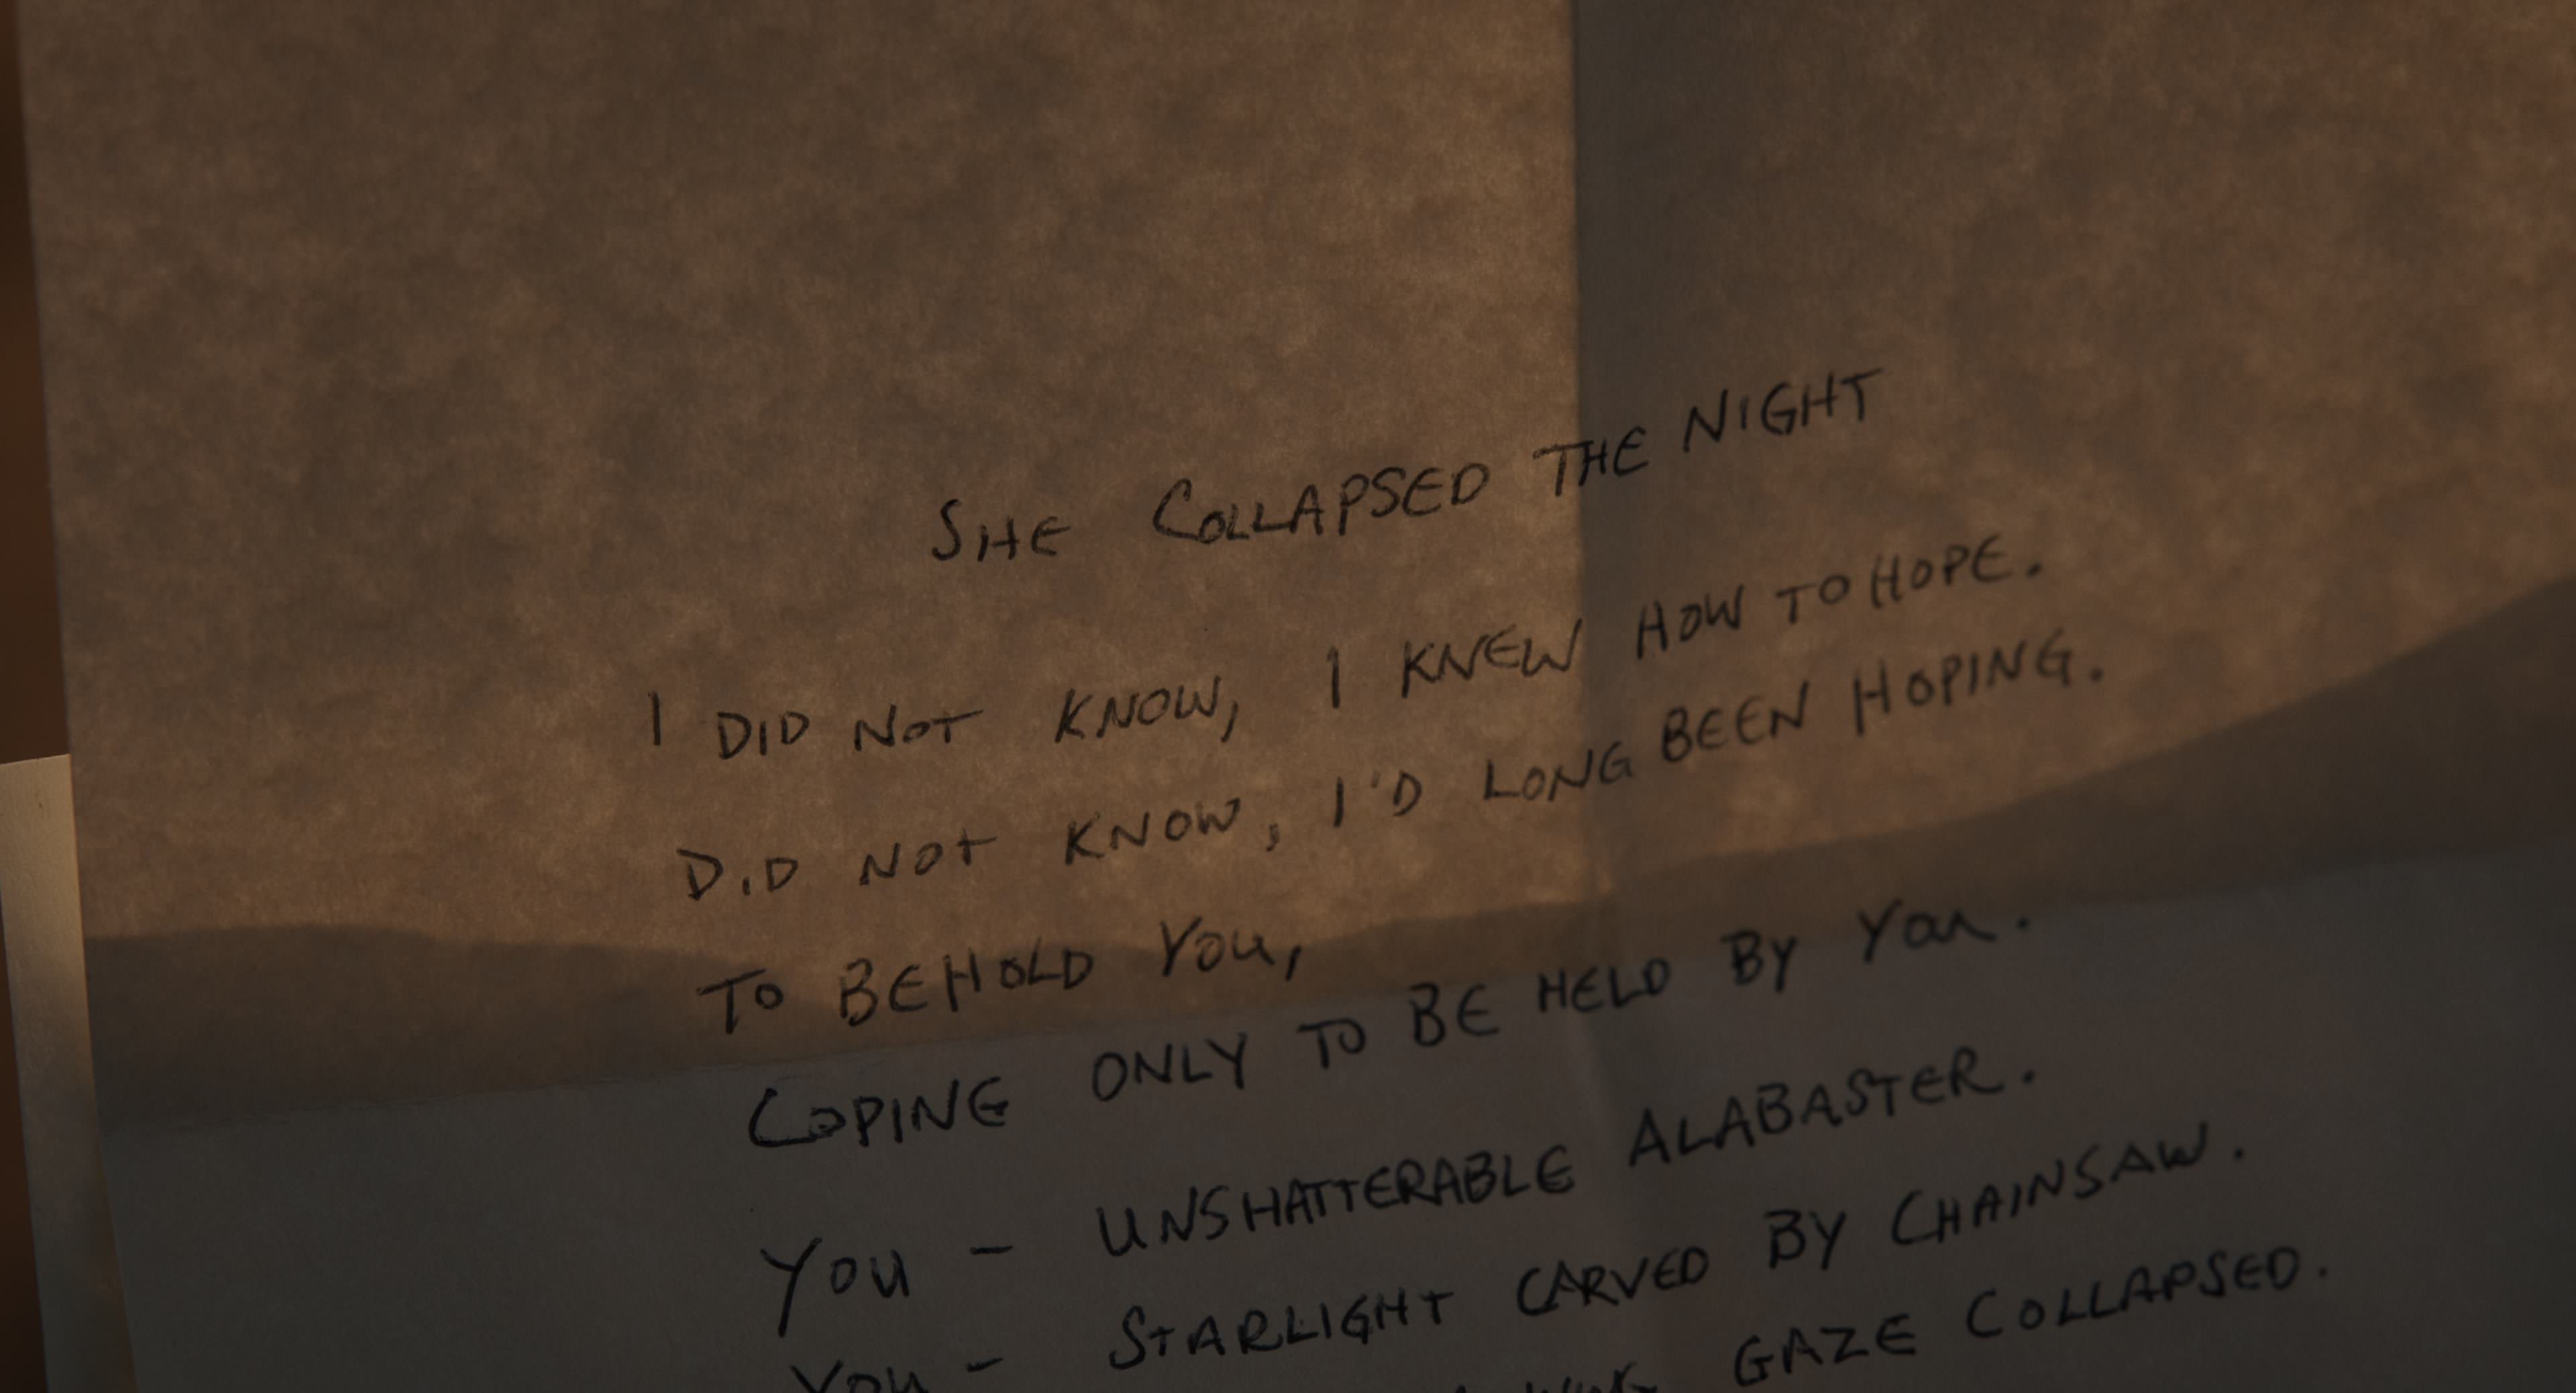 SHE COLLAPSED THE NIGHT
I DID NOT KNOW, I KNEW HOW TO HOPE.
DID NOT KNOW, I'D LONG BEEN HOPING.
TO BEHOLD YOU,
COPING ONLY TO BE HELD BY YOU.
YOU - UNSHATTERABLE ALABASTER.
YOU - STARLIGHT CARVED BY CHAINSAW.
GAZE COLLAPSED.